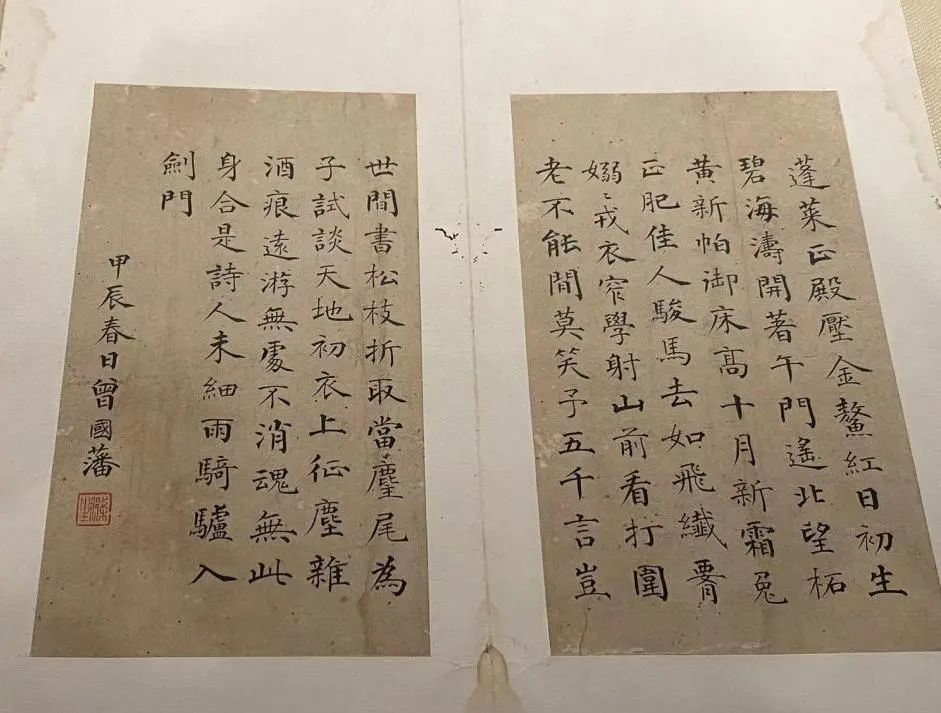 蓬萊正殿壓金鰲紅日初生
碧海濤開著午門遙北望柘
黃新帕御床高十月新霜兔
正肥佳人駿馬去如飛纖腰
嫋〻戎衣窄學射山前看打圍
老不能間莫笑予五千言豈
世間書松枝折取當麈尾為
子試談天地初衣上征塵雜
酒痕遠游無處不消魂無此
身合是詩人未細雨騎驢入
劍門
甲辰春日曾國藩